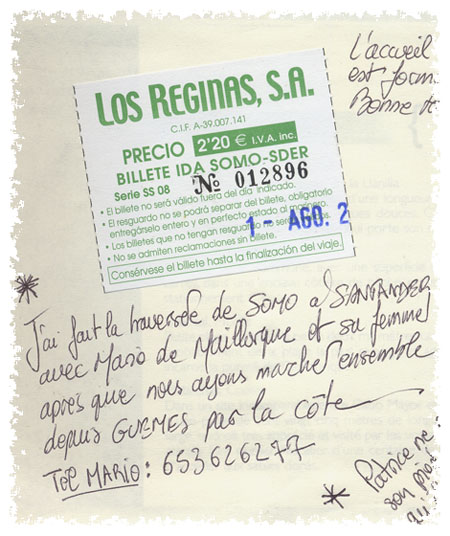 L'accueil
est form
Bonne
LOS REGINAS, S.A.
C.I.F. A-39.007.141
PRECIO 2'20 € I.V.A. inc.
BILLETE IDA SOMO-SDER
Serie SS 08 Nº 012896
• El billete no será válido fuera del día indicado.
• El resguardo no se podrá separar del billete, obligatorio
entregárselo entero y en perfecto estado al marinero.
• Los billetes que no tengan resguardo no se
• No se admiten reclamaciones sin billete.
1 - AGO. 2
Consérvese el billete hasta la finalización del viaje.
J'ai fait la traversée de SOMO à SANTANDER
avec Mario de Maillorque et sa femme
après que nous ayons marché ensemble
depuis GUEMES par la côte
TEL MARIO : 653626277
Patrice ne
son